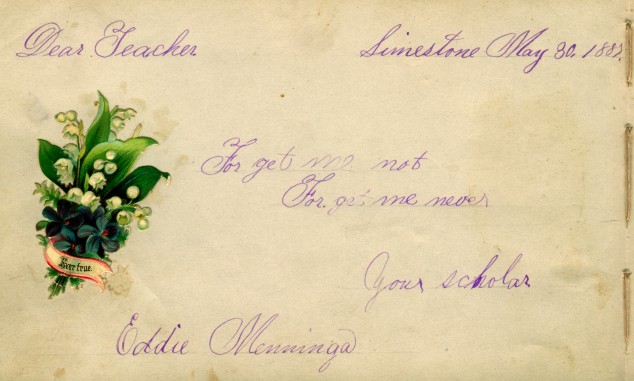 Dear Teacher
Limestone May 30. 188
For get me not
For. get me never
Ever true.
Your scholar
Eddie Menninga